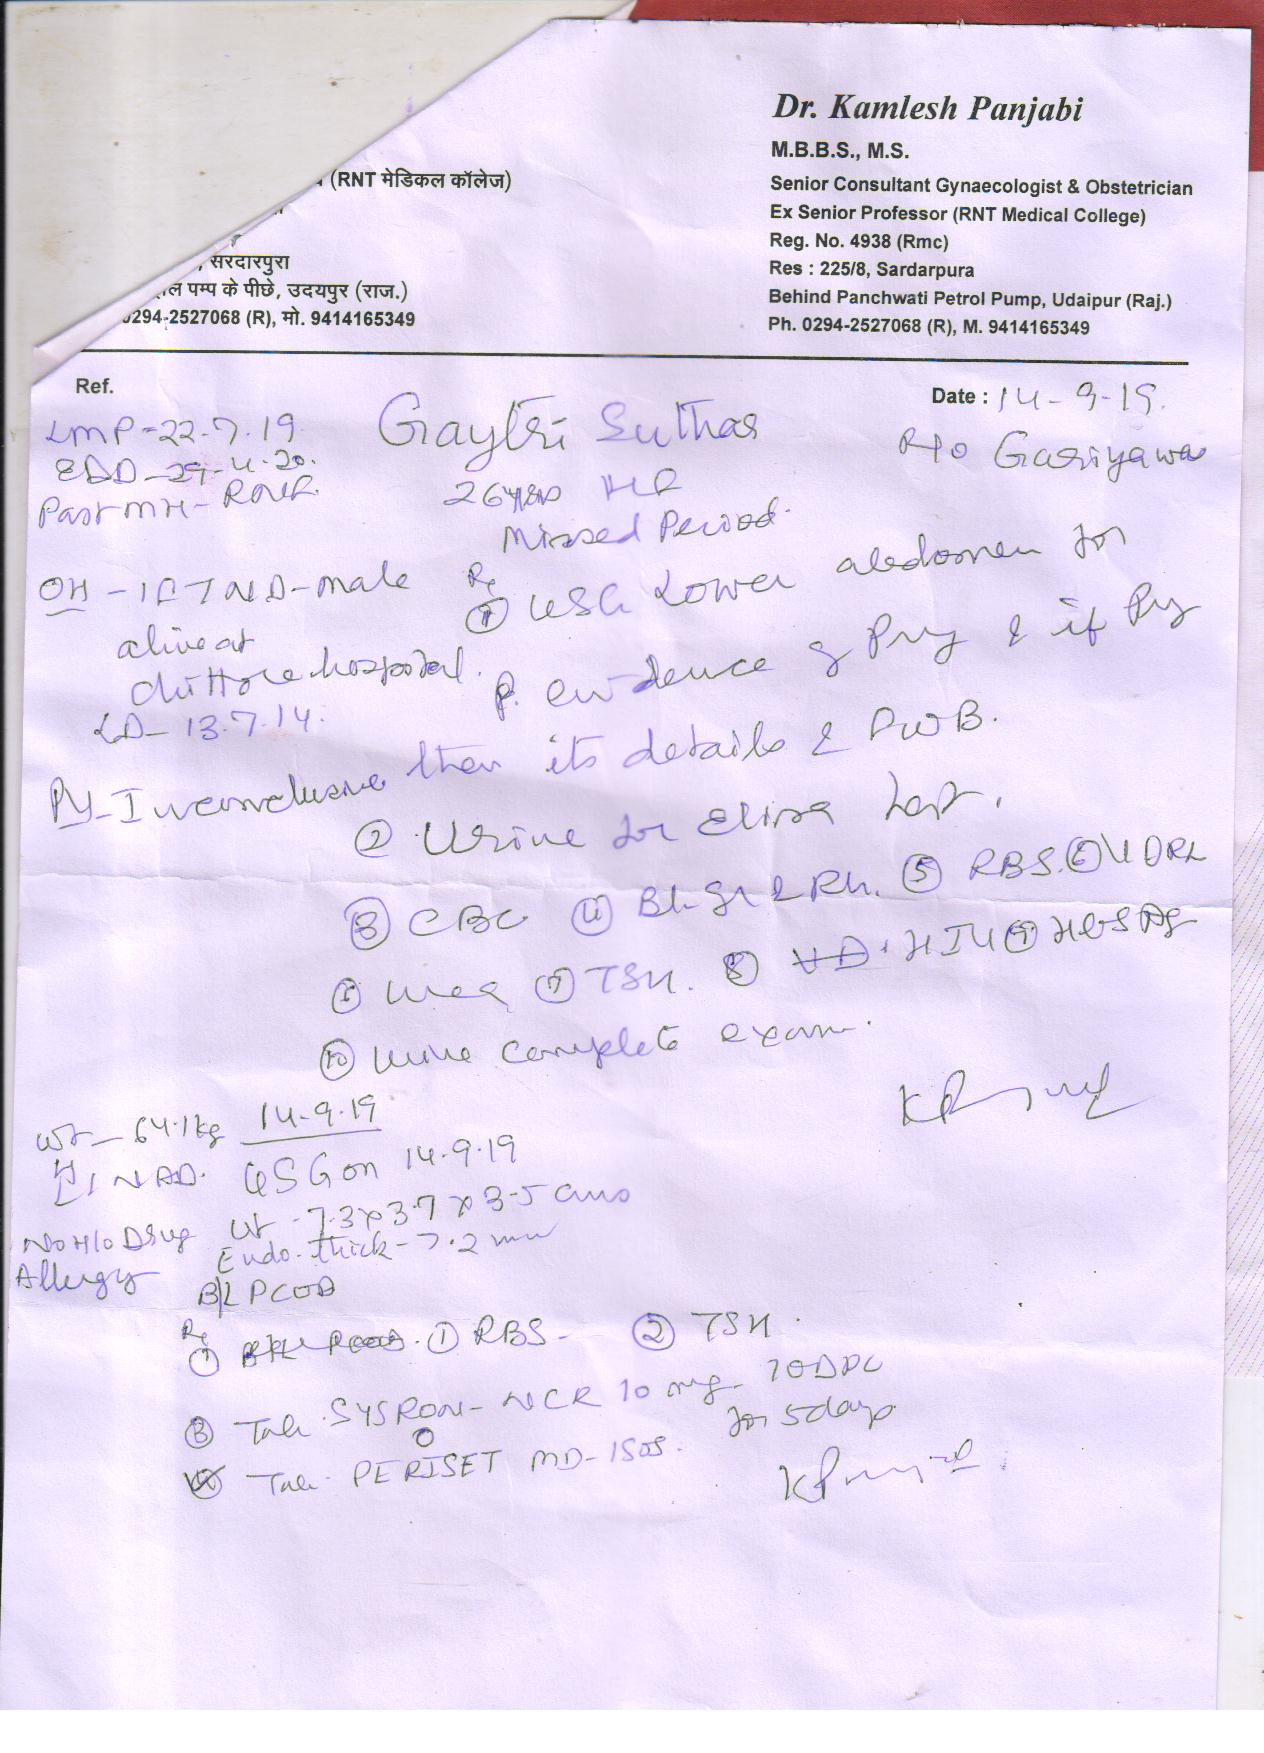 Dr. Kamlesh Panjabi
M.B.B.S., M.S.
(RNT मेडिकल कॉलेज)
Senior Consultant Gynaecologist & Obstetrician
Ex Senior Professor (RNT Medical College)
Reg. No. 4938 (Rmc)
, सरदारपुरा
Res : 225/8, Sardarpura
पम्प के पीछे, उदयपुर (राज.)
Behind Panchwati Petrol Pump, Udaipur (Raj.)
0294-2527068 (R), मो. 9414165349
Ph. 0294-2527068 (R), M. 9414165349
Ref.
Date : 14-9-19.
LMP-22-7-19.
Gaytri Suthar
R/o Gariyawas
EDD-29-4-20.
Past MH-
26 yrs
Missed Period.
OH - 1 FTND-male
Rx
① USG Lower abdomen for
alive at
hospital.
evidence of Pry & if Pry
LD- 13.7.14.
then its details & FWB.
PY-Inconclusive
② Urine for Elisa test.
③ CBC ④ Bl.Gr & Rh. ⑤ RBS. ⑥ VDRL
⑥ Urea ⑦ TSH. ⑧ HIV ⑨ HbSAg
⑩ Urine complete exam.
Wt- 64.1kg
14-9-19
NAD.
USG on 14-9-19
Ut-7.3x3.7x3.5 cms
No H/o Drug
Endo. thick-7.2 mm
Allergy
B/L PCOD
Rx
① RBS- ② TSH.
③ Tab. SYSRON-NCR 10 mg-
for 5 days
Tab. PERISET MD-